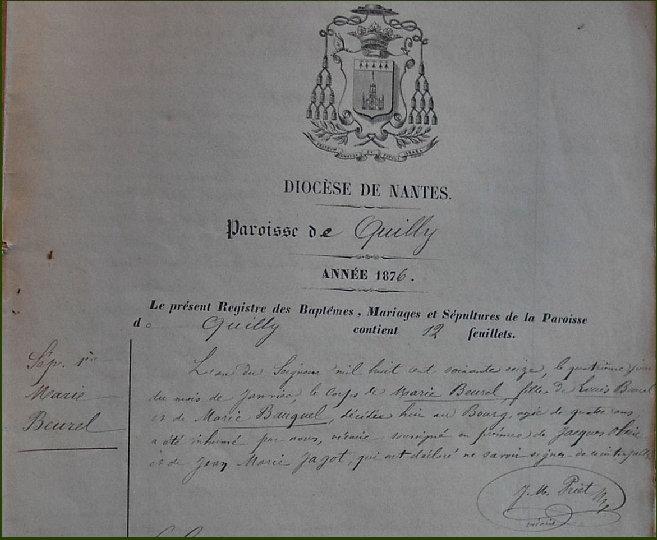 DIOCÈSE DE NANTES.
Paroisse de Quilly
ANNÉE 1876.
Le présent Registre des Baptêmes, Mariages et Sépultures de la Paroisse
de Quilly contient 12 feuillets.
Sép. 1re
Marie
Beurel
L'an du Seigneur mil huit cent soixante seize, le quatrième jour
du mois de Janvier le corps de Marie Beurel fille de Louis Beurel
et de Marie Bauquel, décédée hier au Bourg, agée de quatre ans
a été inhumé par nous, vicaire soussigné en présence de Jacques
et de Jean Marie Jagot, qui ont déclaré ne savoir signer de ce interpellés
J. M. Priet
vicaire